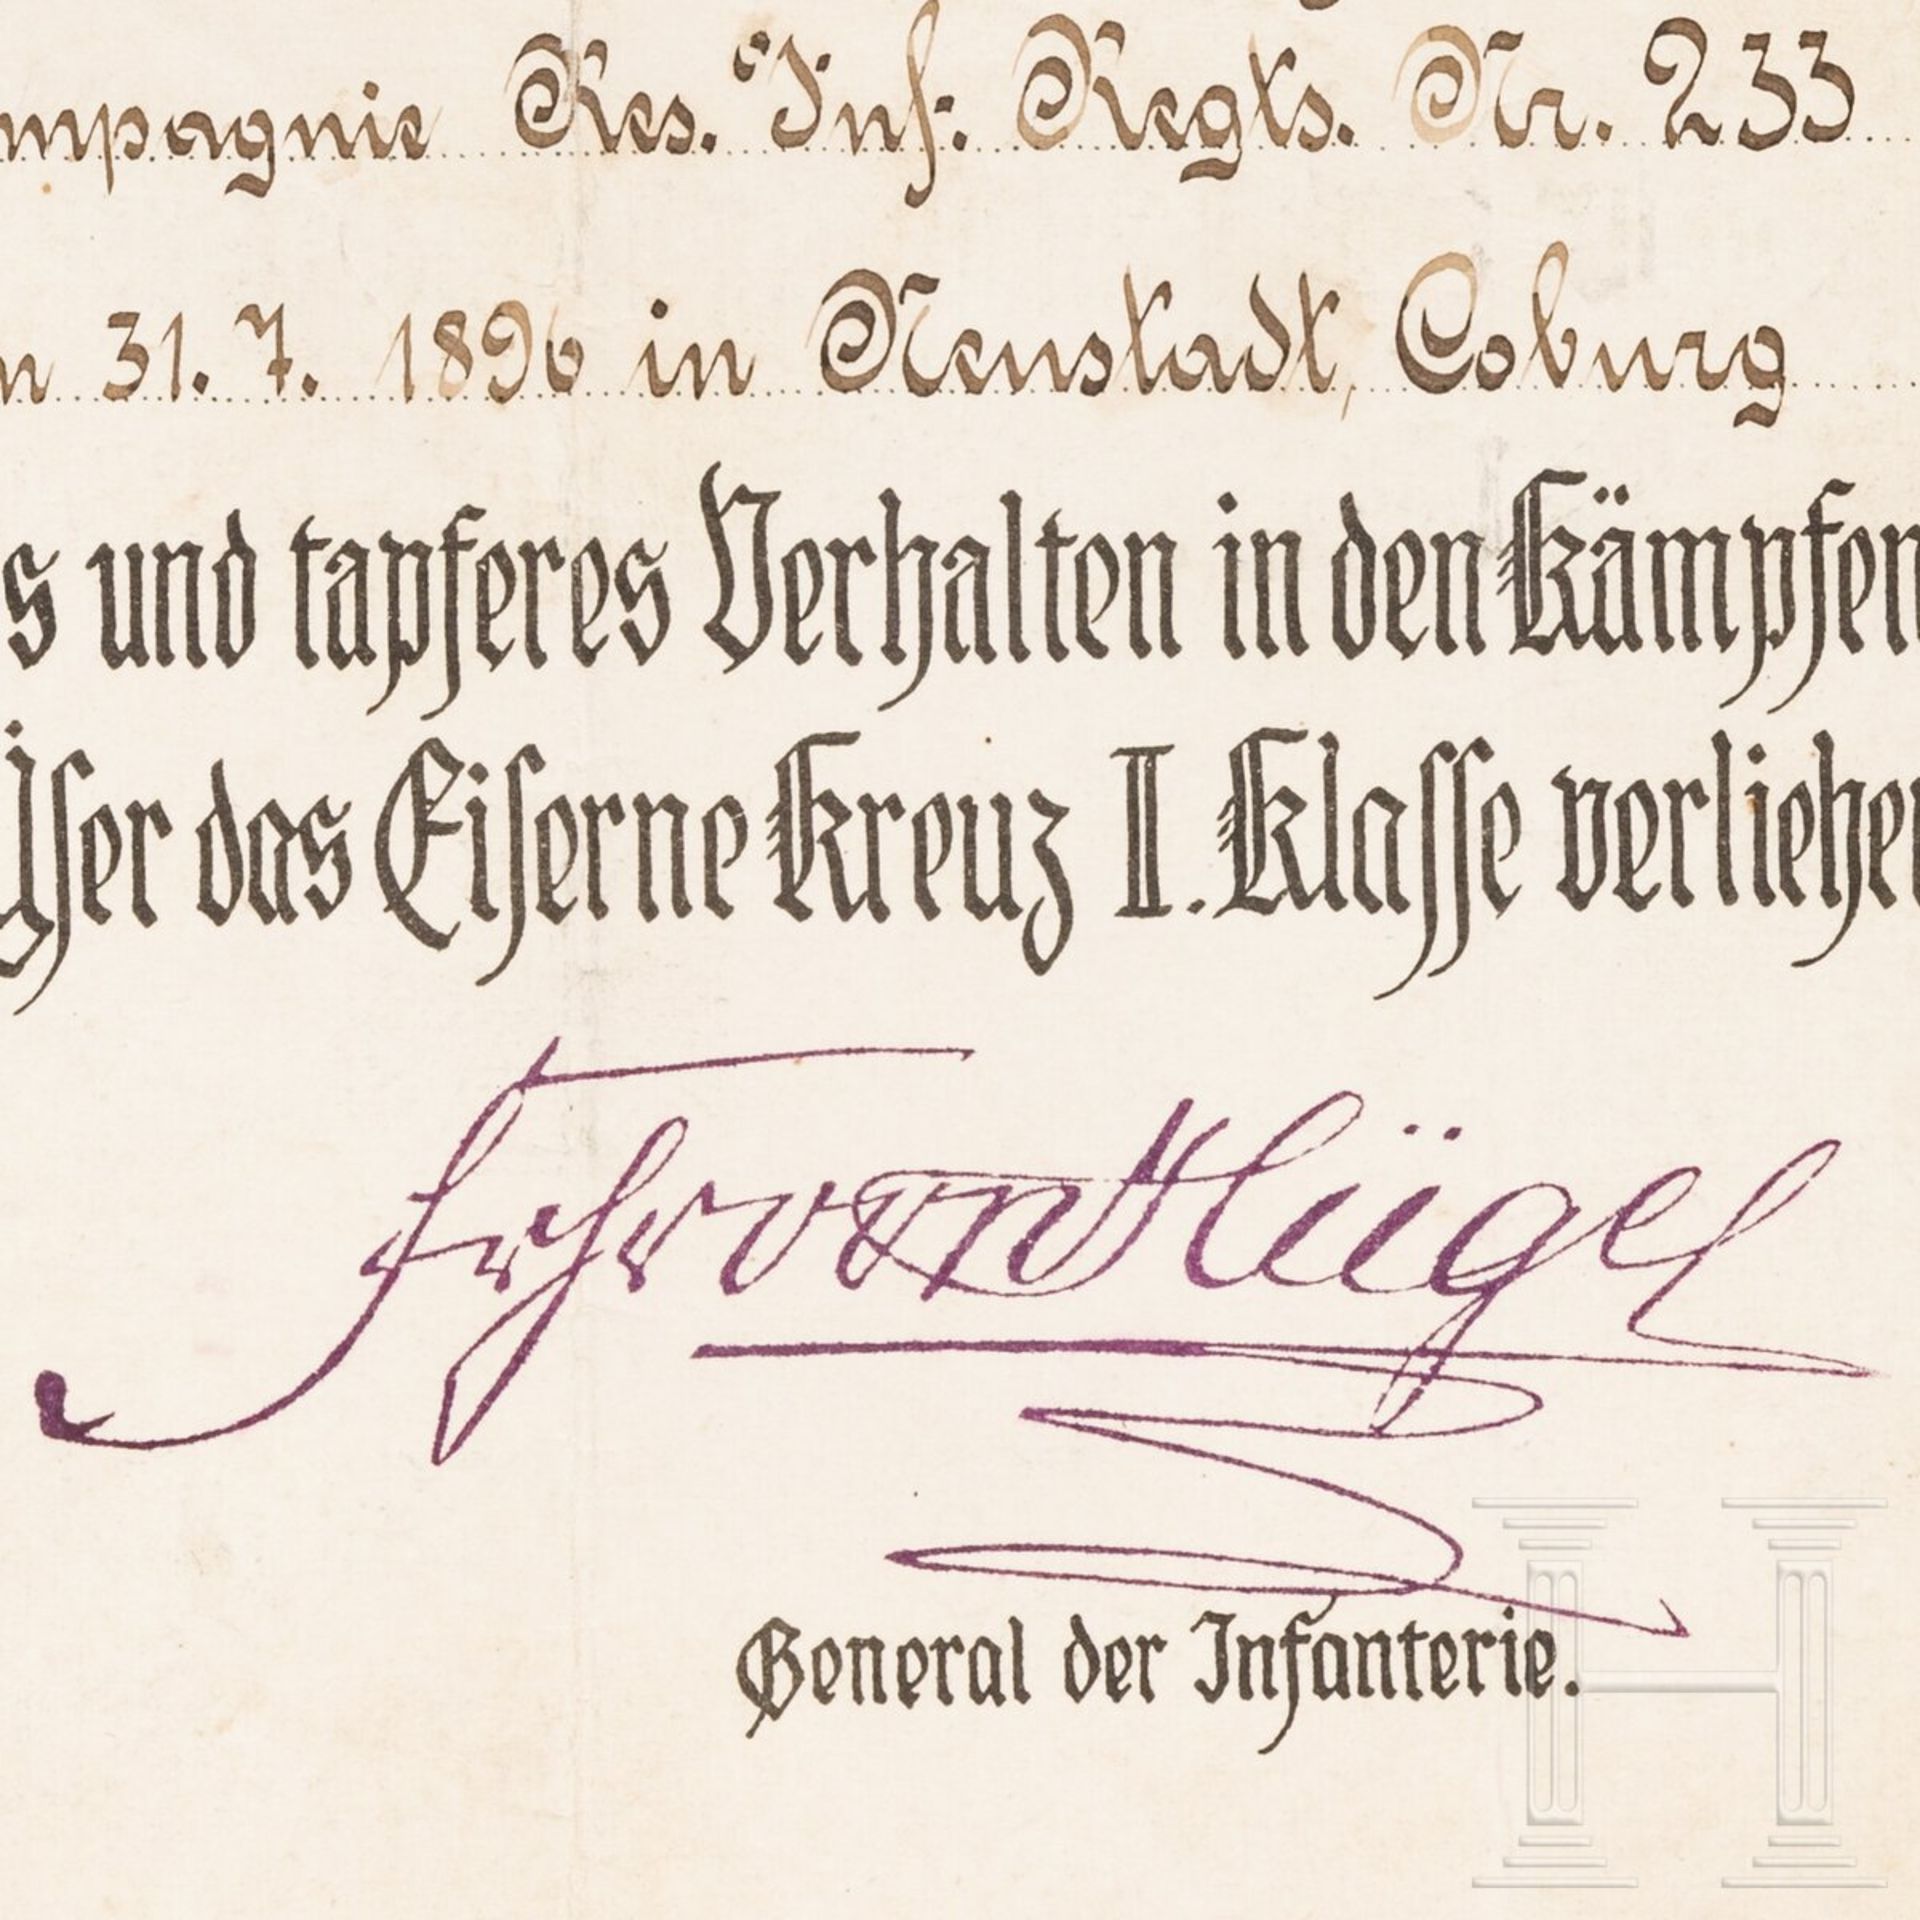 mpagnie Res. Inf. Regts. Nr. 233
n 31. 7. 1896 in Neustadt, Coburg
s und tapferes Verhalten in den Kämpfen
Yser das Eiserne Kreuz II. Klasse verliehen
Frhr von Hügel
General der Infanterie.
H